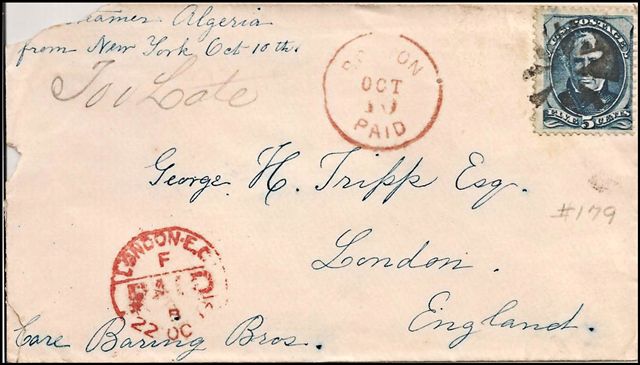 Steamer Algeria
from New York Oct 10th.
Too Late
BOSTON
OCT
10
PAID
U.S. POSTAGE
FIVE 5 CENTS
George H. Tripp Esq.
#179
London.
England.
LONDON-E.C
F
PAID
B
22 OC
Care Baring Bros.